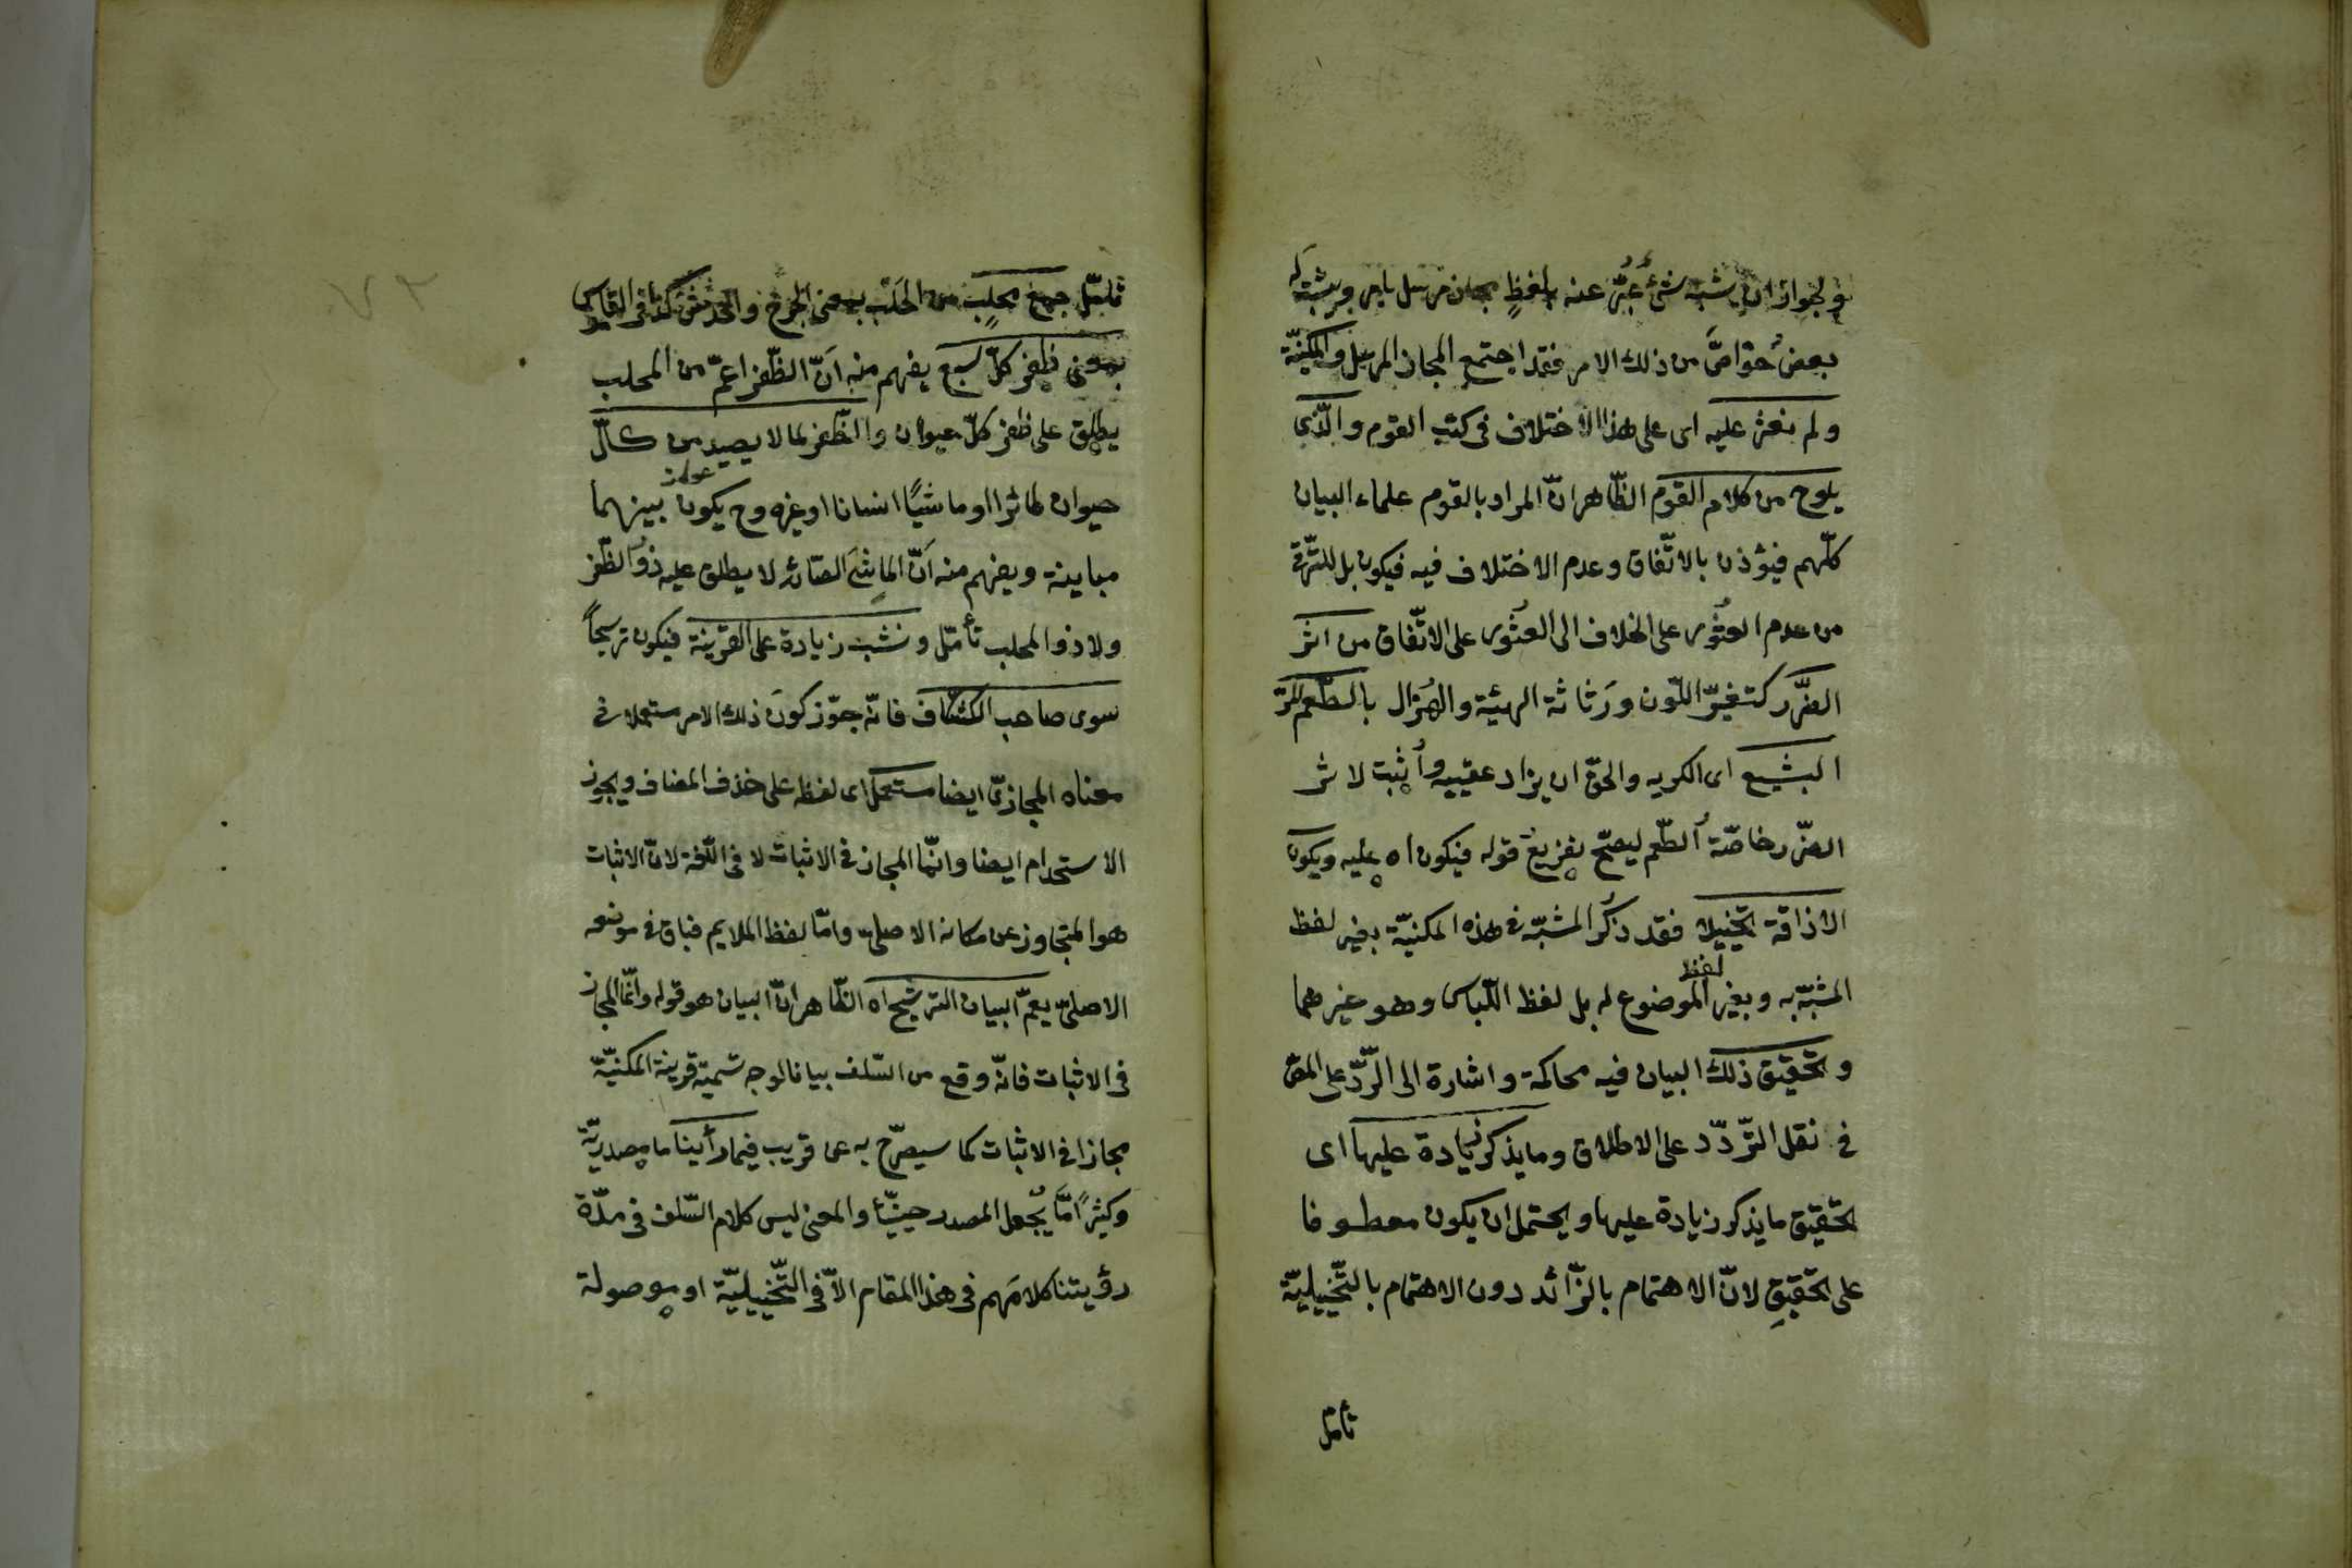 ولجواز ان يشبه شئ عبّر عنه بلفظٍ مجاز مرسل بامر ويثبت له
بعضُ خواصَّ من ذلك الامر فقد اجتمع المجاز المرسل والمكنيّة
ولم نعثر عليه اى على هذا الاختلاف فى كتب القوم والّذى
يلوح من كلام القوم الظّاهر انّ المراد بالقوم علماء البيان
كلّهم فيؤذن بالاتّفاق وعدم الاختلاف فيه فيكون بل للتّرقّى
من عدم العثُور على الخلاف الى العثُور على الاتّفاق من اثر
الضّرر كتغيّر اللّون ورَثاثة الهيئة والهُزال بالطّعم المُرّ
البشيع اى الكريه والحقّ ان يزاد عقيبه وأثبت لاثر
الضّرر خاصّة الطّعم ليصحّ تفريع قوله فيكون اه عليه ويكون
الاذاقة تخييلا فقد ذكُر المشبّه فى هذه المكنيّة بغير لفظ
المشبّه به وبغير لفظ الموضوع له بل لفظ اللّباس وهو غيرهما
وتحقيق ذلك البيان فيه محاكمة واشارة الى الرّدّ على المصّ
فى نقل التّردّد على الاطلاق وما يذكر زيادة عليها اى
تحقيق ما يذكر زيادة عليها ويحتمل ان يكون معطوفا
على تحقيقِ لانّ الاهتمام بالزّائد دون الاهتمام بالتّخييليّة
تأمّل
تأمّل جمع مخلب من الخلب بمعنى الجرح والخدش كذا فى القاموس
بمعنى ظفر كلّ سبع يفهم منه اَنّ الظّفر اعمّ من المخلب
يطلق على ظفر كلّ حيوان والظّفر لما لا يصيد من كلّ
حيوان طائرا او ماشيًا انسانا او غيره وح يكون بينهما
مباينة ويفهم منه اَنّ الماشَى الصّائد لا يطلق عليه ذو الظّفر
ولا ذو المخلب تأمّل ونشبت زيادة على القرينة فيكون ترشيحاً
سوى صاحب الكشّاف فانّه جوّز كونَ ذلك الامر مستعملا فى
معناه المجازىّ ايضا مستعمل اى لفظه على حذف المضاف ويجوز
الاستخدام ايضا وانّما المجاز فى الاثبات لا فى اللّغة لانّ الاثبات
هو المتجاوز عن مكانه الاصلىّ وامّا لفظ الملايم فباق فى موضعه
الاصلىّ يعمّ البيان التّرشيح اه الظّاهر انّ البيان هو قوله وانّما المجاز
فى الاثبات فانّه وقع من السّلف بيانا لوجه تسمية قرينة المكنيّة
مجازا فى الاثبات كما سيصرّح به عن قريب فيما رأينا ما مصدريّة
وكثيرًا مّا يُجعل المصدر حينيّا والمعنى ليس كلام السّلف فى مدّة
رؤيتنا كلامَهم فى هذا المقام الاّ فى التّخييليّة او موصولة